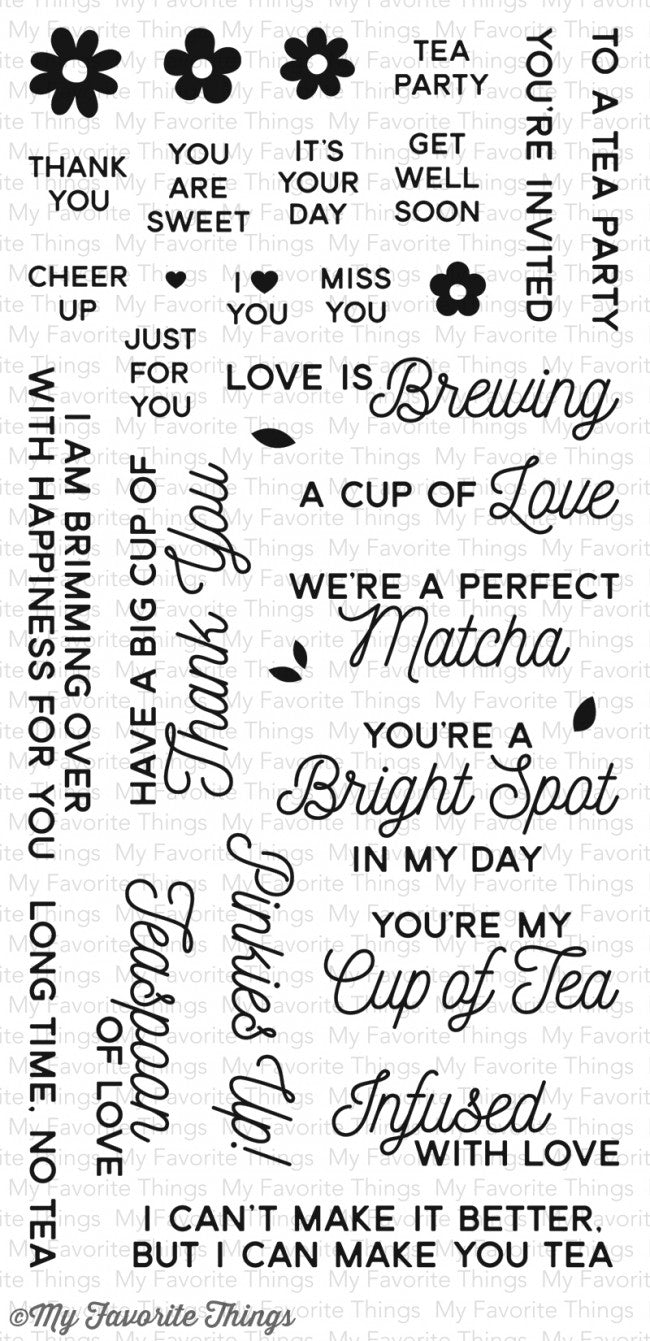 TEA
PARTY
TO A TEA PARTY
YOU'RE INVITED
THANK
YOU
YOU
ARE
SWEET
IT'S
YOUR
DAY
GET
WELL
SOON
CHEER
UP
I ♥
YOU
MISS
YOU
JUST
FOR
YOU
LOVE IS Brewing
A CUP OF Love
WE'RE A PERFECT
Matcha
YOU'RE A
Bright Spot
IN MY DAY
I AM BRIMMING OVER
WITH HAPPNESS FOR YOU
HAVE A BIG CUP OF
Thank You
Pinkies Up!
Teaspoon
OF LOVE
LONG TIME, NO TEA
YOU'RE MY
Cup of Tea
Infused
WITH LOVE
I CAN'T MAKE IT BETTER,
BUT I CAN MAKE YOU TEA
©My Favorite Things